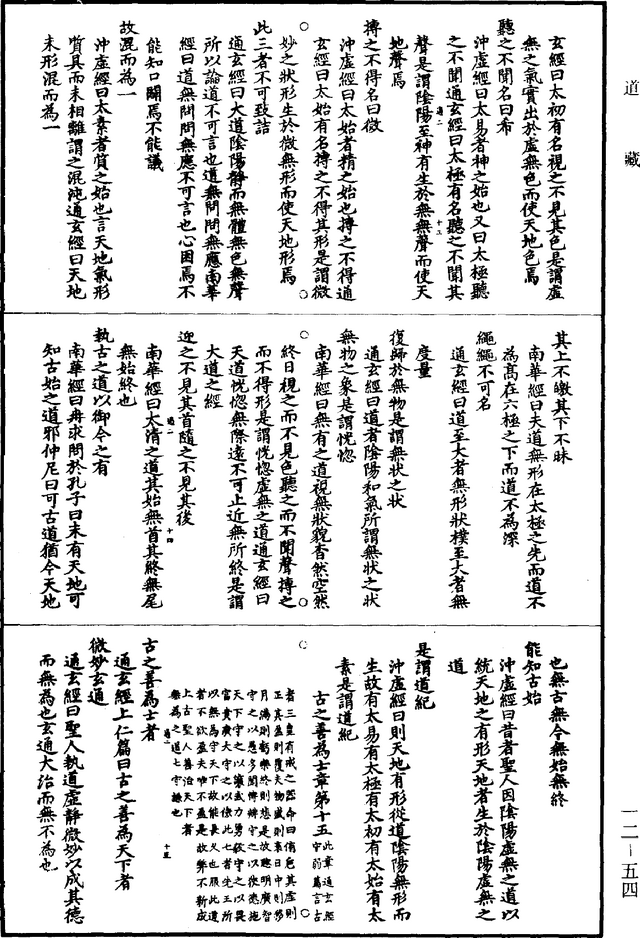 道藏
玄經曰太初有名視之不見其色是謂虛
無之氣實出於虛無色而使天地色焉
聽之不聞名曰希
沖虛經曰太易者神之始也又曰太極聽
之不聞通玄經曰太極有名聽之不聞其
聲是謂陰陽至神有生於無無聲而使天
地聲焉
摶之不得名曰微
沖虛經曰太始者精之始也摶之不得通
玄經曰太始有名摶之不得其形是謂微
妙之狀形生於微無形而使天地形焉
此三者不可致詰
通玄經曰大道陰陽靜而無體無色無聲
所以論道不可言也道無問問無應南華
經曰道無問問無應不可言也心困焉不
能知口闢焉不能議
故混而為一
沖虛經曰太素者質之始也言天地氣形
質具而未相離謂之混沌通玄經曰天地
未形混而為一
其上不皦其下不昧
南華經曰夫道無形在太極之先而道不
為高在六極之下而道不為深
繩繩不可名
通玄經曰道至大者無形狀樸至大者無
度量
復歸於無物是謂無狀之狀
通玄經曰道者陰陽和氣所謂無狀之狀
無物之象是謂恍惚
南華經曰無有之道視無狀貌杳然空然
終日視之而不見色聽之而不聞聲摶之
而不得形是謂恍惚虛無之道通玄經曰
天道恍惚無際遠不可止近無所終是謂
大道之經
迎之不見其首隨之不見其後
南華經曰太清之道其始無首其終無尾
無始終也
執古之道以御今之有
南華經曰冉求問於孔子曰未有天地可
知古始之道邪仲尼曰可古道猶今天地
也無古無今無始無終
能知古始
沖虛經曰昔者聖人因陰陽虛無之道以
統天地之有形天地者生於陰陽虛無之
道
是謂道紀
沖虛經曰則天地有形從道陰陽無形而
生故有太易有太極有太初有太始有太
素是謂道紀
古之善為士章第十五
古之善為士者
通玄經上仁篇曰古之善為天下者
微妙玄通
通玄經曰聖人執道虛靜微妙以成其德
而無為也玄通大治而無不為也
一二－五四